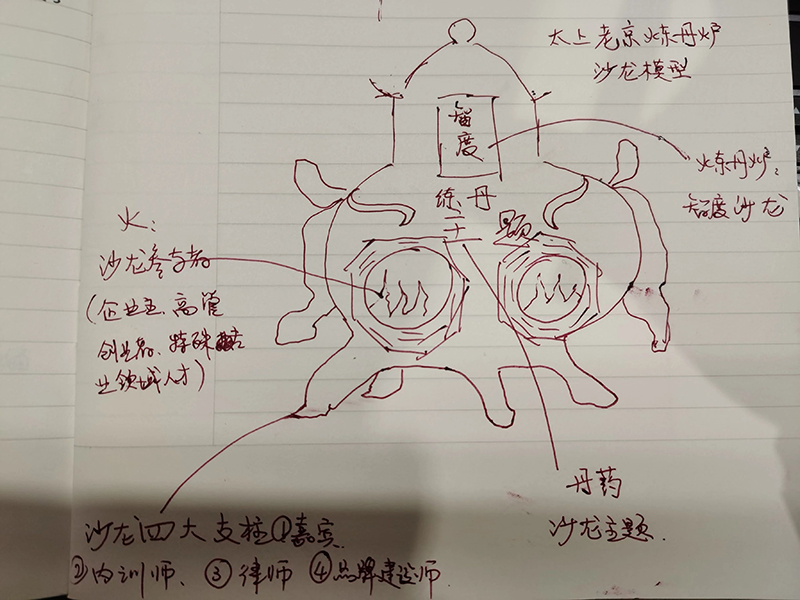 太上老京炼丹炉
沙龙模型
智
度
炼丹炉:
智度沙龙
练丹
二十
题
火:
沙龙参与者
(企业主、高管
创业者、特殊
业领域人才)
丹药
沙龙主题.
沙龙四大支柱①嘉宾、
②内训师、③律师 ④品牌建设师.